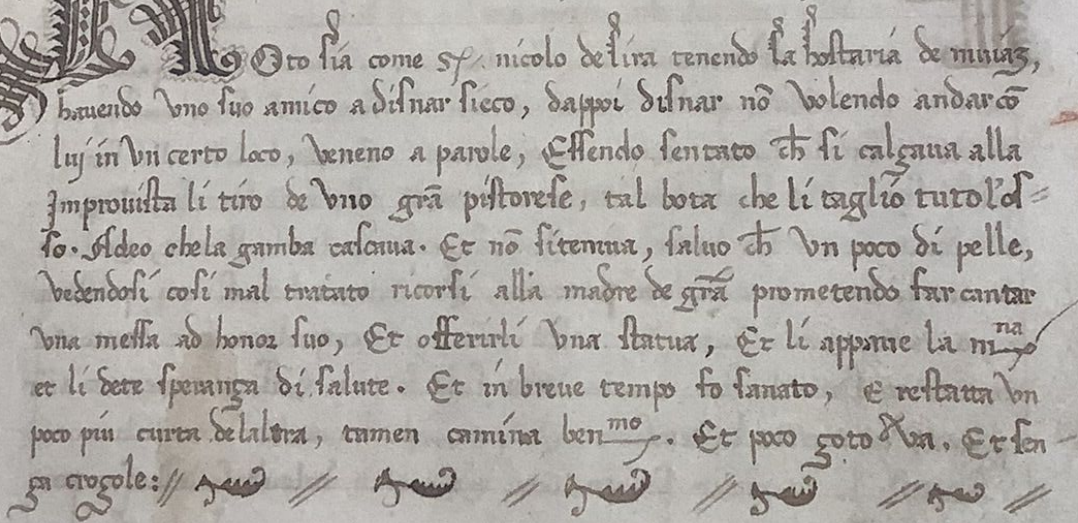 NOto sia come sp. nicolo de lira tenendo la hostaria de muiaz,
hauendo vno suo amico a disnar sieco, dappoi disnar nõ volendo andar cõ
luj in vn certo loco, veneno a parole, Essendo sentato ch̃ si calzaua alla
Jmprouista li tiro de vno grã pistorese, tal bota che li tagliõ tuto l'os=
so. Adeo che la gamba cascaua. Et nõ si teniua, saluo ch̃ vn poco di pelle,
vedendosi cosi mal tratato ricorsi alla madre de grã prometendo far cantar
vna messa ad honor suo, Et offerirli vna statua, Et li apparue la m na
et li dete speranza di salute. Et in breue tempo fo sanato, e restatta vn
poco piu curta de laltra, tamen camina ben mo. Et poco zoto va. Et sen
za crozole://